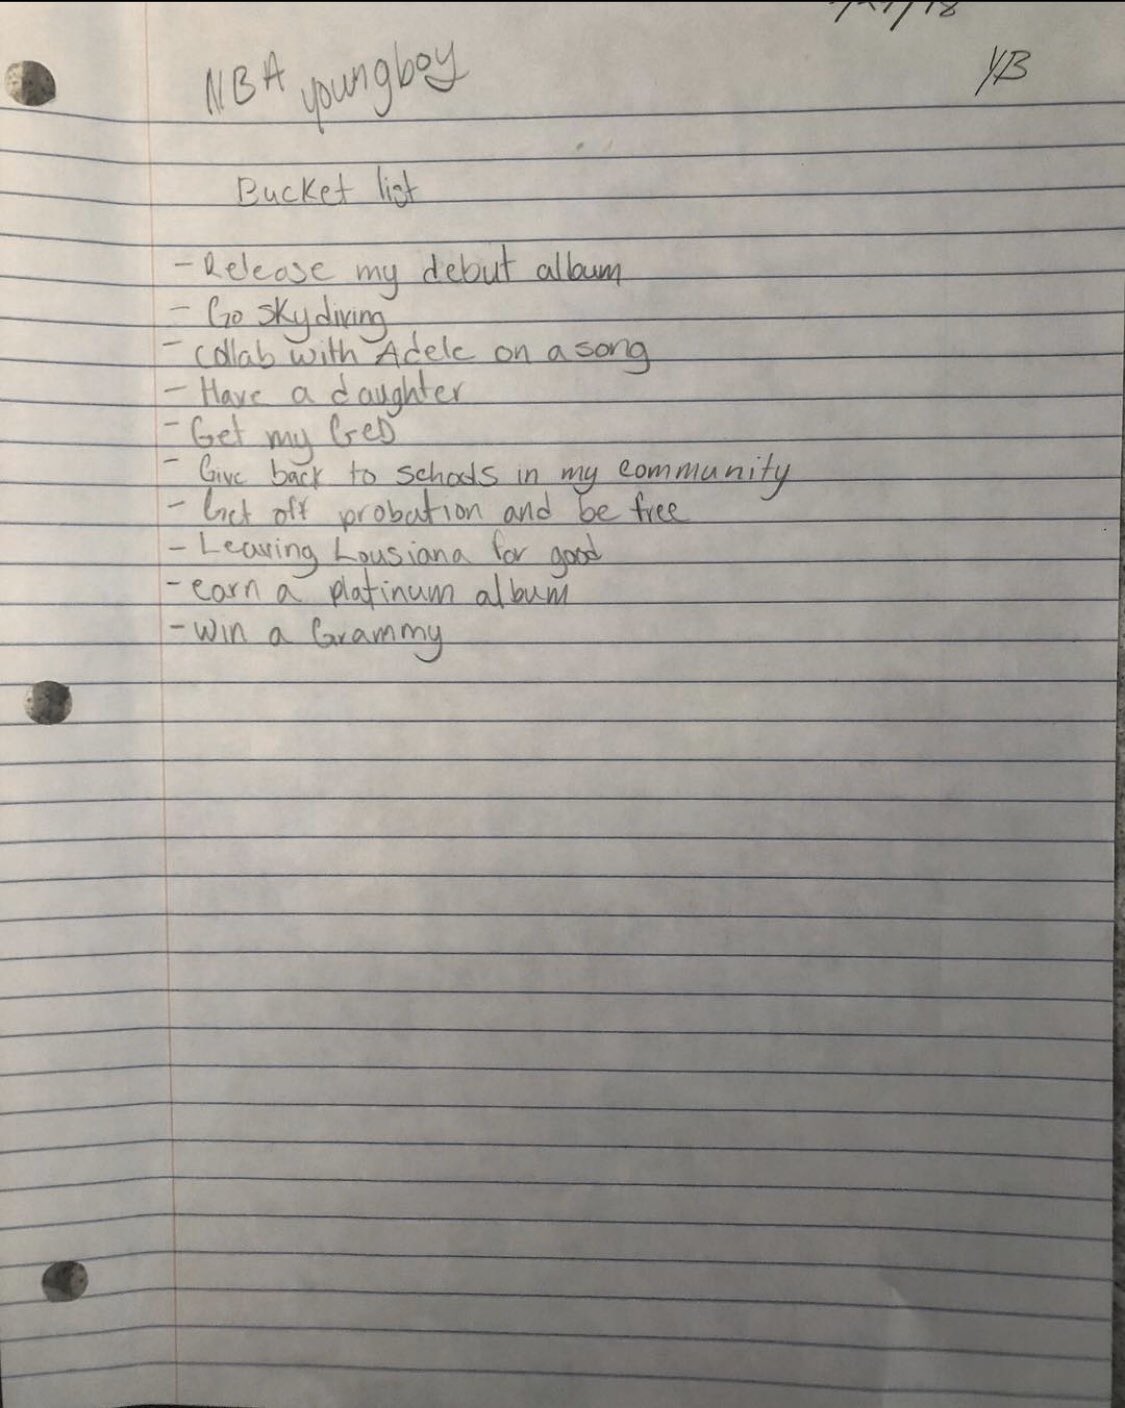 NBA youngboy
YB
Bucket list
- Release my debut album
- Go skydiving
- collab with Adele on a song
- Have a daughter
- Get my GeD
- Give back to schools in my community
- Get off probation and be free
- Leaving Lousiana for good
- earn a platinum album
- win a Grammy